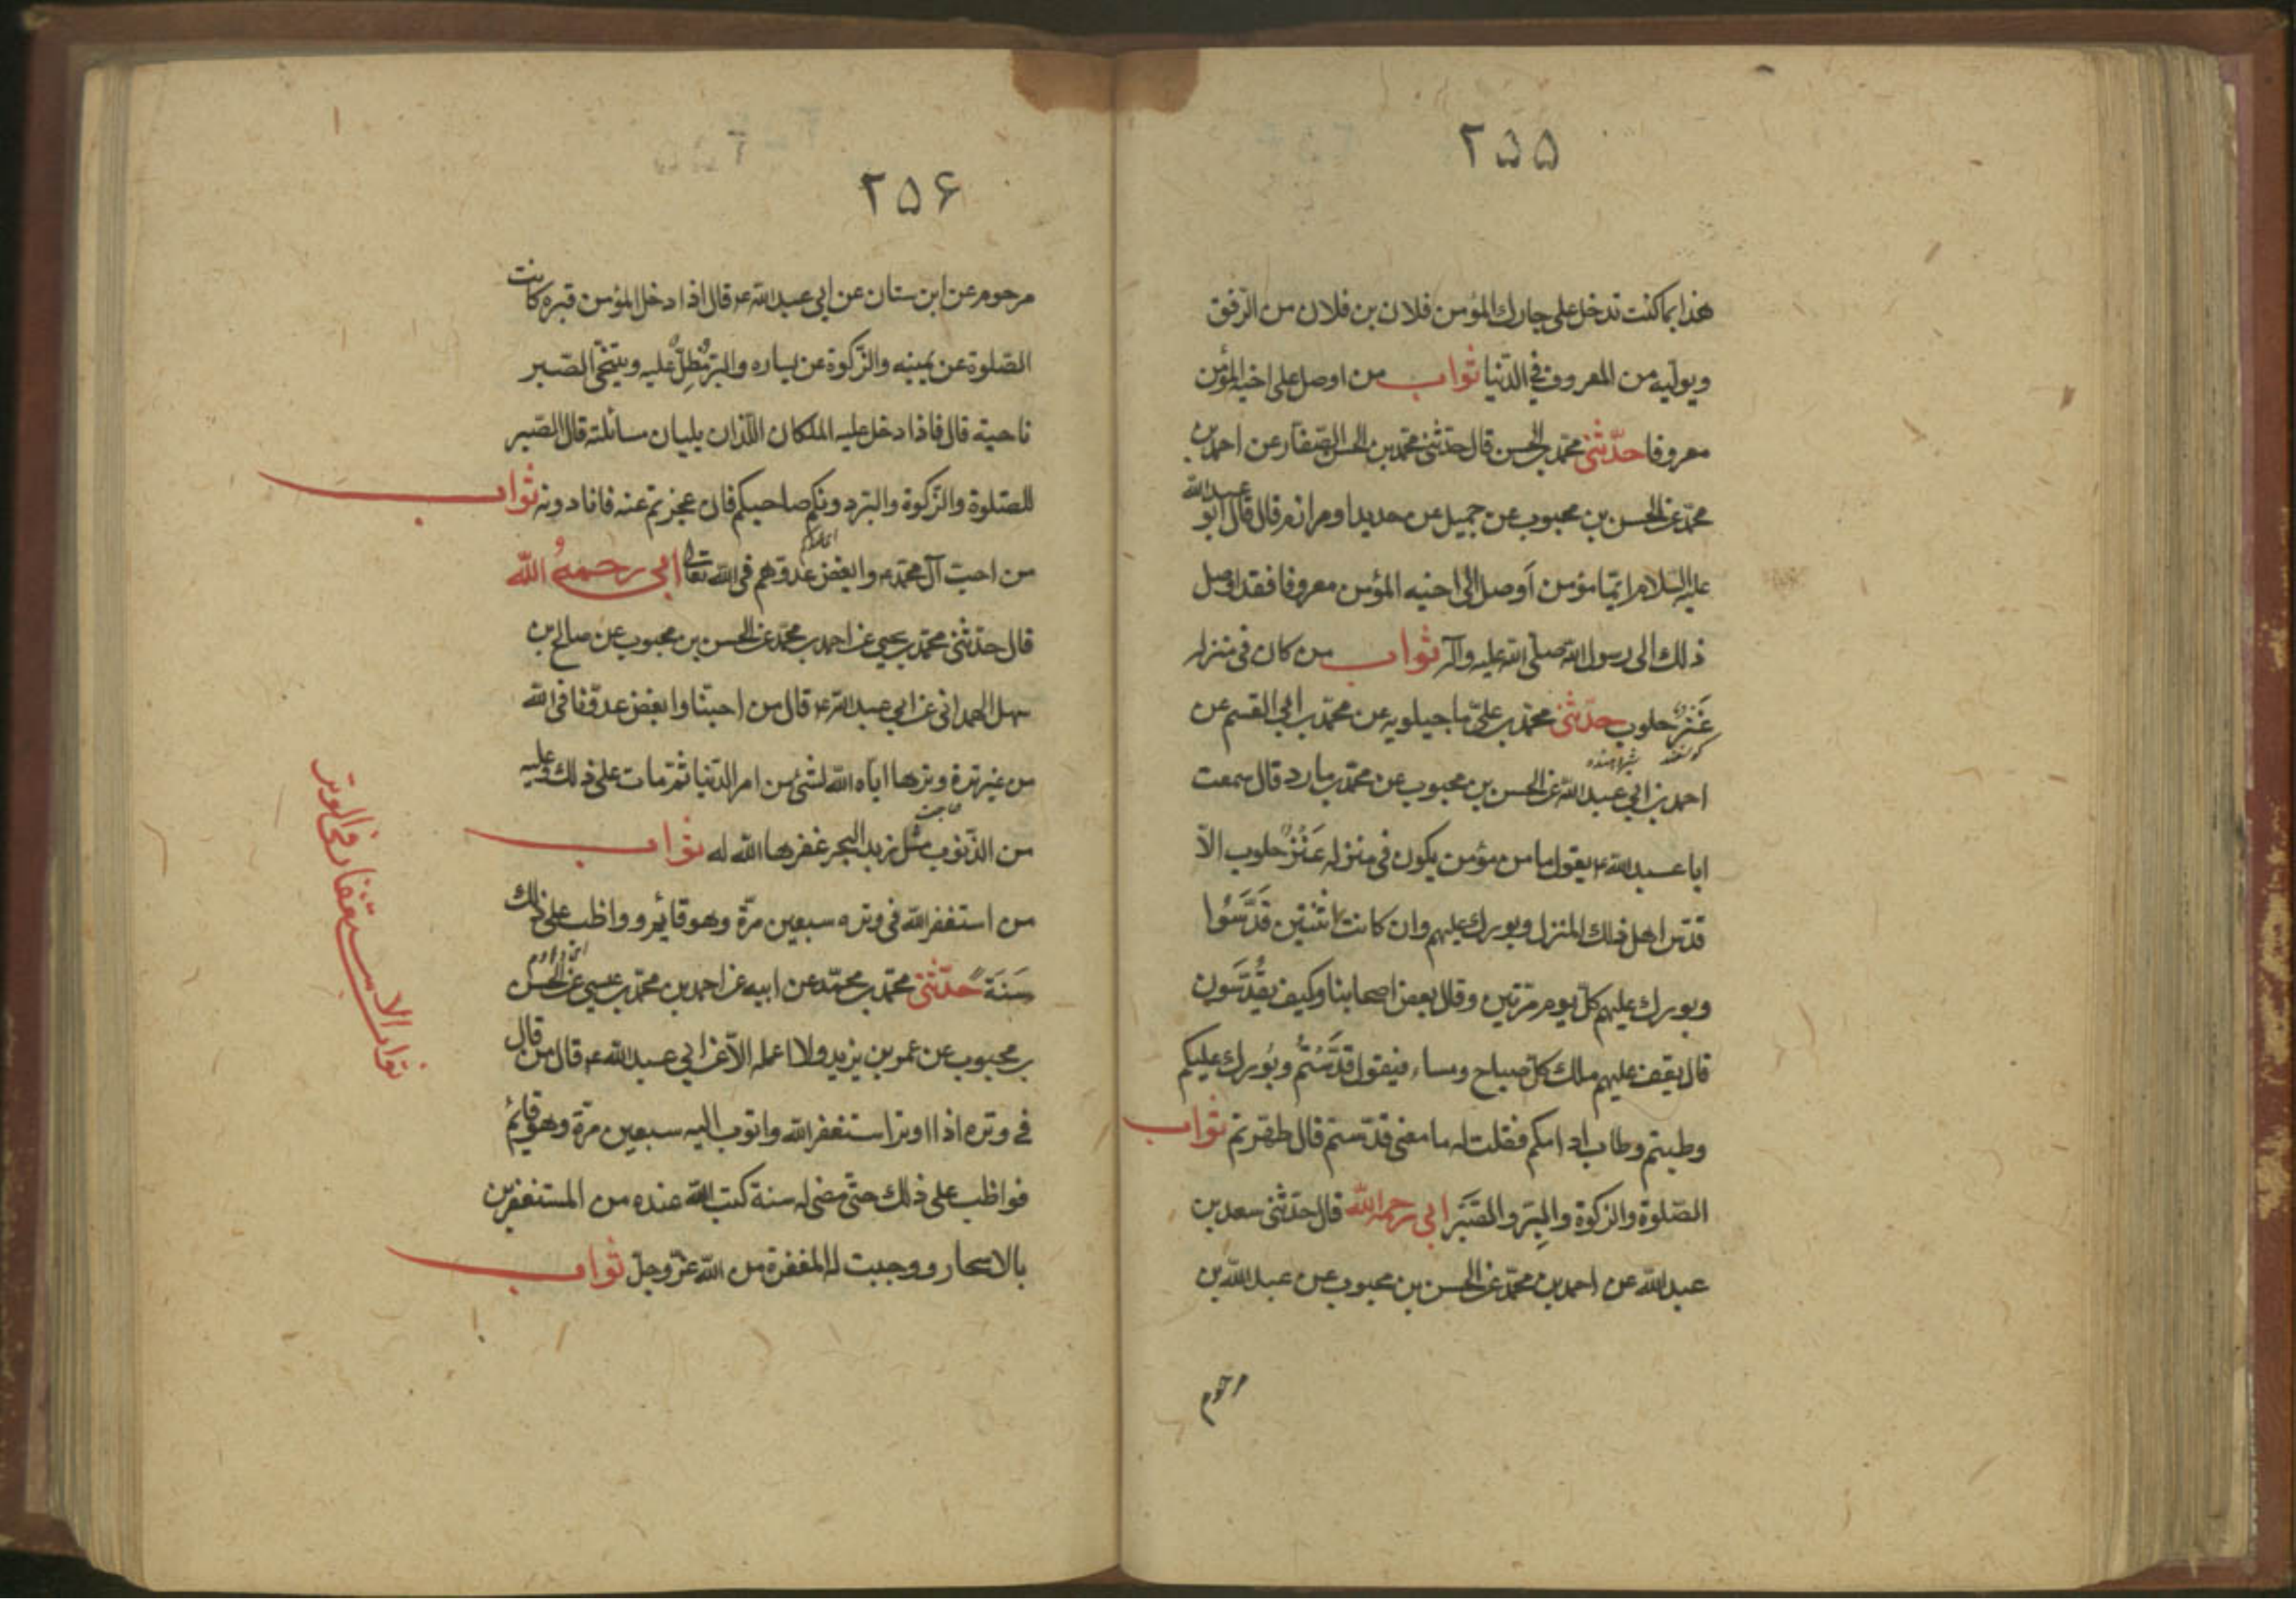 ۲۵۵
هذا بما كنت تدخل على جارك المؤمن فلان بن فلان من الرّفق
ويوليه من المعروف في الدّنيا ثواب من اوصل على اخيه المؤمن
معروفا حدّثنى محمّد بن الحسن قال حدّثنى محمّد بن الحسن الصّفار عن احمد بن
محمّد عن الحسن بن محبوب عن جميل عن حديد او مرازم قال قال ابو عبد الله
عليه السّلام ايّما مؤمن أوصل الى اخيه المؤمن معروفا فقد اوصل
ذلك الى رسول الله صلّى الله عليه وآله ثواب من كان فى منزله
عَنْزٌ حلوب حدّثنى محمّد بن علىّ ماجيلويه عن محمّد بن ابى القسم عن
احمد بن ابي عبد الله عن الحسن بن محبوب عن محمّد بن مارد قال سمعت
ابا عبد الله ع يقول ما من مؤمن يكون فى منزله عَنْزٌ حلوب الاّ
قدّس اهل ذلك المنزل وبورك عليهم وان كانت اثنتين قَدَّسُوا
وبورك عليهم كلّ يوم مرّتين وقال بعض اصحابنا وكيف يقَدَّسَون
قال يقف عليهم ملك كلّ صباح ومساء فيقول قدَّسْتُمْ وبُورك عليكم
وطبتم وطاب ادامكم فقلت له ما معنى قدّستم قال طهّرتم ثواب
الصّلوة والزكوة والبِرّ والصَّبْر ابى رحمه الله قال حدّثنى سعد بن
عبد الله عن احمد بن محمّد عن الحسن بن محبوب عن عبد الله بن
مرحوم
۲۵۶
مرحوم عن ابن سنان عن ابى عبد الله ع قال اذا دخل المؤمن قبره كانت
الصّلوة عن يمينه والزّكوة عن يساره والبرّ مُطِلٌّ عليه ويتنحّى الصّبر
ناحية قال فاذا دخل عليه الملكان اللّذان يليان مسائلته قال الصّبر
للصّلوة والزّكوة والبرّ دونكم صاحبكم فان عجزتم عنه فانا دونه ثواب
من احبّ آل محمّد ع وابغض عدوّهم فى الله تعالى ابى رحمهُ الله
قال حدّثنى محمّد بن يحيى عن احمد بن محمّد عن الحسن بن محبوب عن صالح بن
سهل الهمدانى عن ابى عبد الله ع قال من احبّنا وابغض عدوّنا فى الله
من غير ترة وترها ايّاه الله لشئ من امر الدّنيا ثمّ مات على ذلك وعليه
من الذّنوب مثل زبد البحر غفرها الله له ثواب
من استغفر الله فى وتره سبعين مرّة وهو قائم وواظب على ذلك
سَنَةً حدّثنى محمّد بن محمّد عن ابيه عن احمد بن محمّد بن عيسى عن الحسن
بن محبوب عن عمر بن يزيد ولا اعلمه الاّ عن ابى عبد الله ع قال من قال
فى وتره اذا اوتر استغفر الله واتوب اليه سبعين مرّة وهو قائم
فواظب على ذلك حتّى مضى له سنة كتب الله عنده من المستغفرين
بالاسحار ووجبت له المغفرة من الله عزّ وجلّ ثواب
ثواب الاستغفار فى الوتر